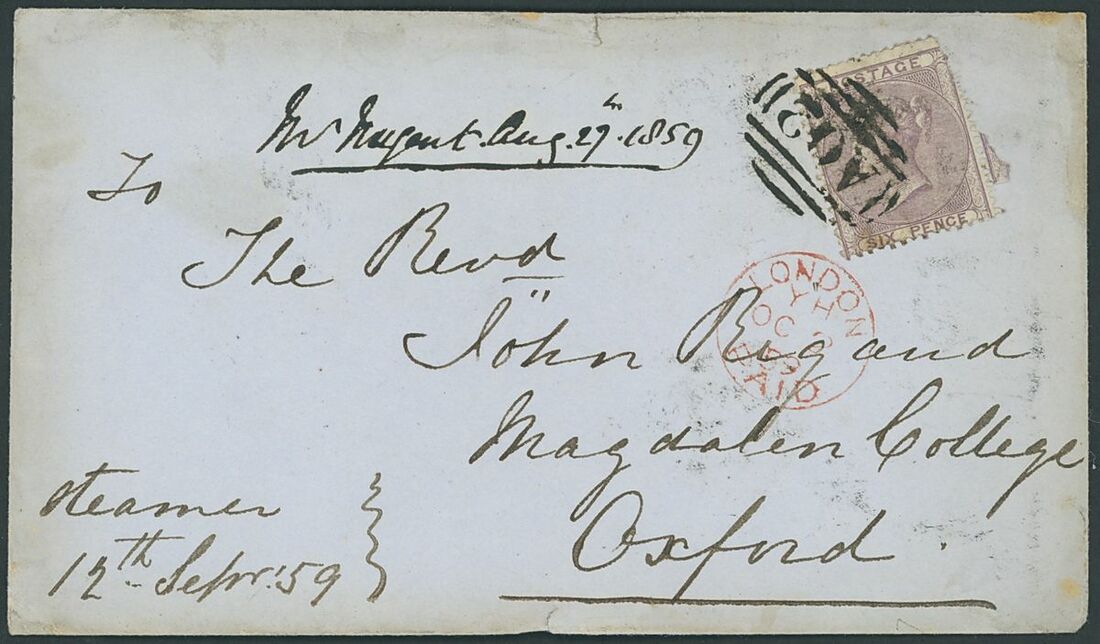 Mr Nugent. Aug. 29th. 1859
POSTAGE
SIX PENCE
A02
To
The Revd
John Rigaud
LONDON
YH
OC
59
PAID
Magdalen College
Oxford.
steamer
12th Sepr. '59